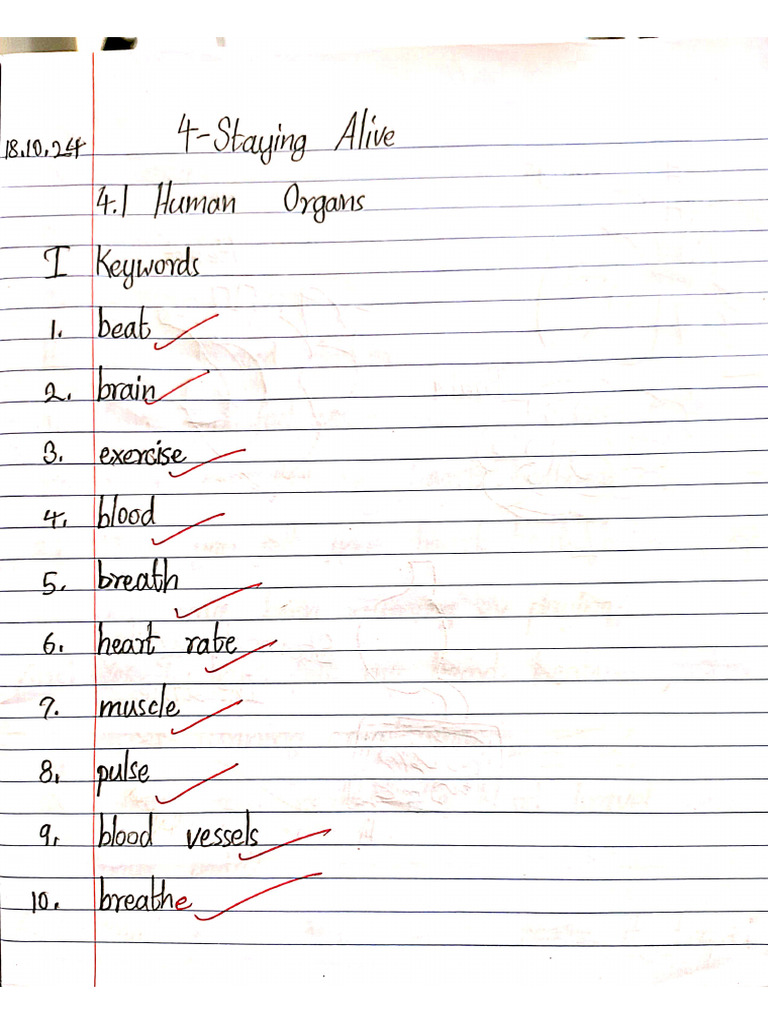 4-Staying Alive
18.10.24
4.1 Human Organs
I Keywords
1. beat
2. brain
3. exercise
4. blood
5. breath
6. heart rate
7. muscle
8. pulse
9. blood vessels
10. breathe